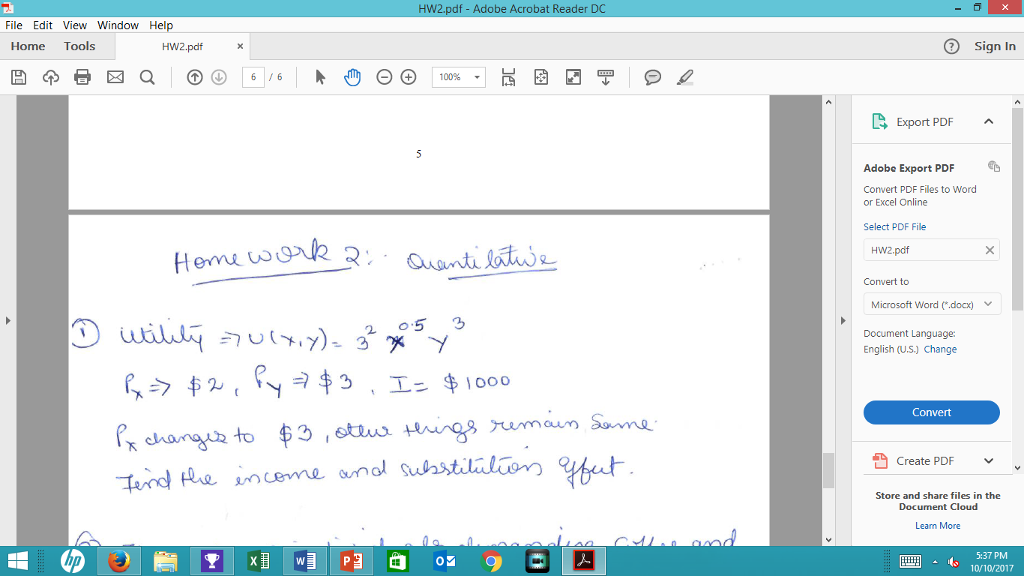 HW2.pdf - Adobe Acrobat Reader DC
File Edit View Window Help
Home Tools HW2.pdf × ? Sign In
6 / 6 100%
5
Homework 2: Quantilative
① utility => U(x,y) = 3² x^0.5 y^3
Px => $2, Py => $3, I = $1000
Px changes to $3, other things remain same.
Find the income and substitution effect.
Export PDF
Adobe Export PDF
Convert PDF Files to Word
or Excel Online
Select PDF File
HW2.pdf ×
Convert to
Microsoft Word (*.docx)
Document Language:
English (U.S.) Change
Convert
Create PDF
Store and share files in the
Document Cloud
Learn More
5:37 PM
10/10/2017